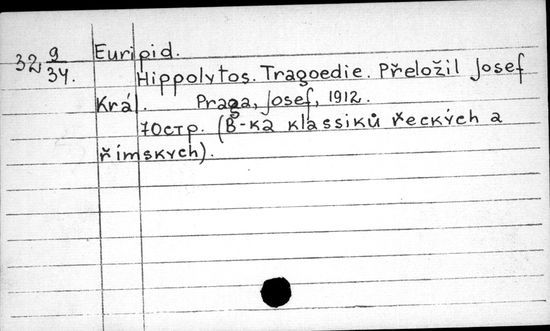 32 9/34. Euripid.
Hippolytos. Tragoedie. Přeložil Josef
Král. Praga, Josef, 1912.
70стр. (B-ka klassiků řeckých a
římských).